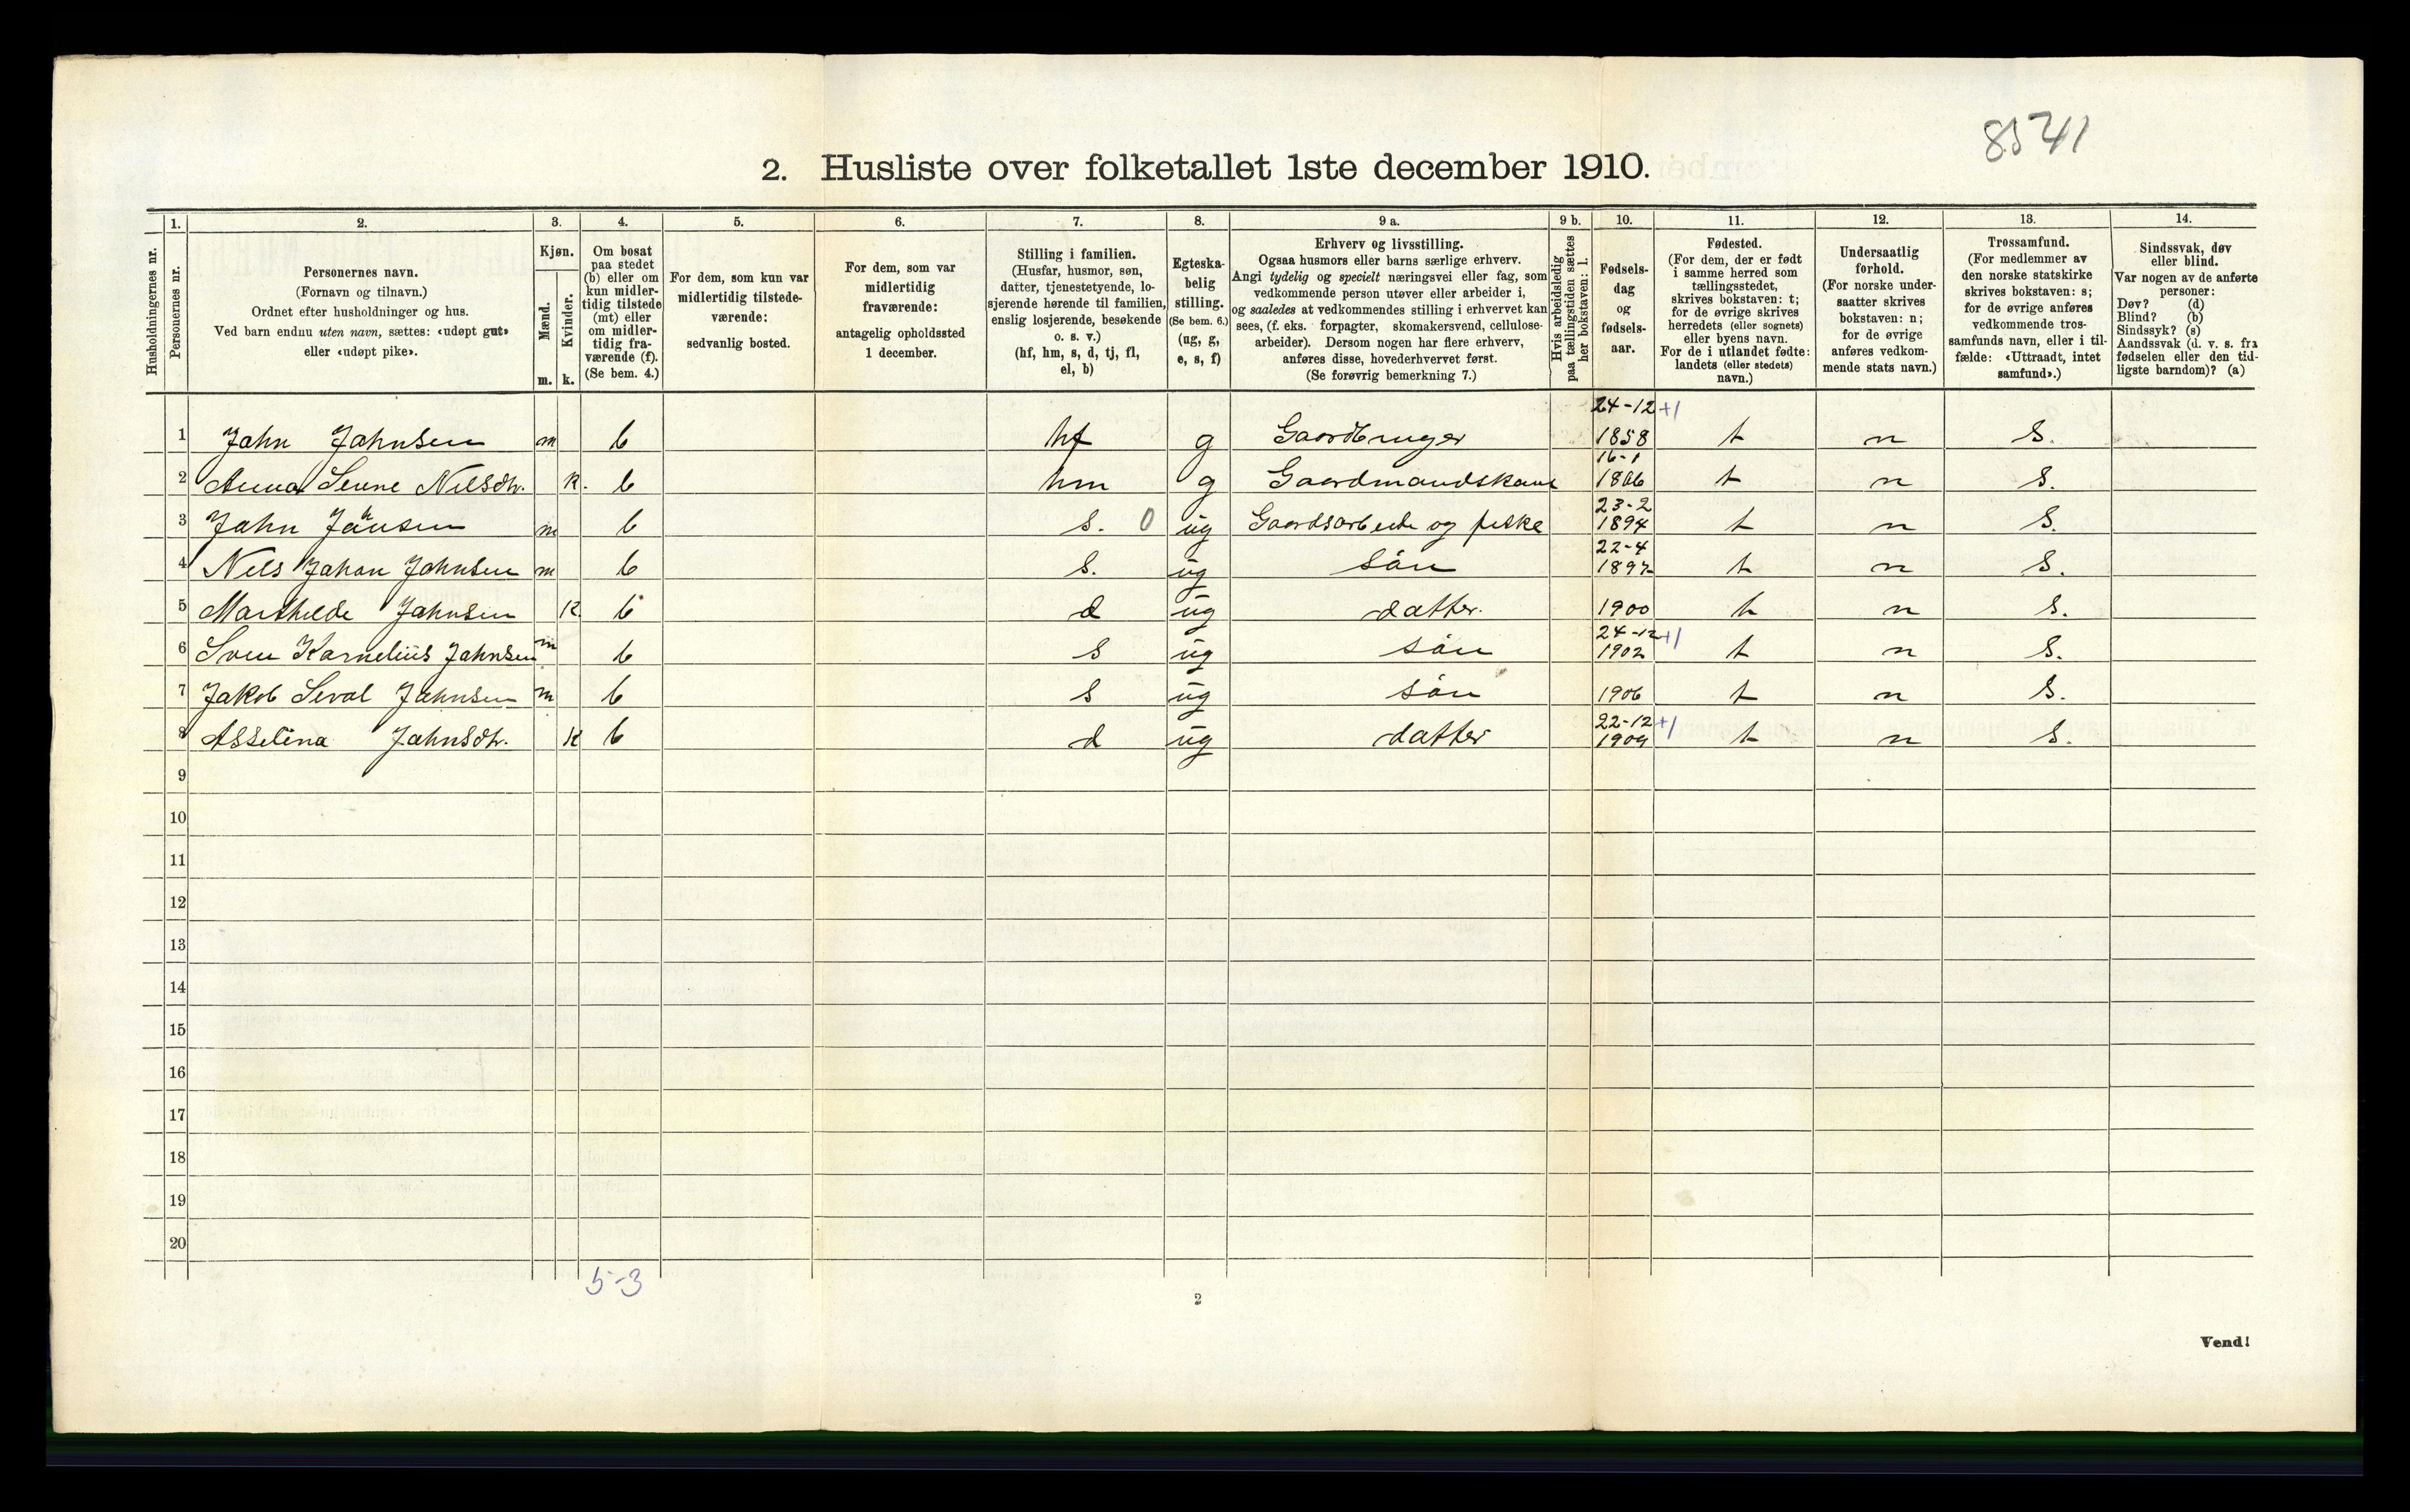 8541
2. Husliste over folketallet 1ste december 1910.
Husholdningernes nr.
1.
Personernes nr.
2.
Personernes navn.
(Fornavn og tilnavn.)
Ordnet efter husholdninger og hus.
Ved barn endnu uten navn, sættes: «udøpt gut»
eller «udøpt pike».
3.
Kjøn.
Mænd.
Kvinder.
m. k.
4.
Om bosat
paa stedet
(b) eller om
kun midler-
tidig tilstede
(mt) eller
om midler-
tidig fra-
værende (f).
(Se bem. 4.)
5.
For dem, som kun var
midlertidig tilstede-
værende:
sedvanlig bosted.
6.
For dem, som var
midlertidig
fraværende:
antagelig opholdssted
1 december.
7.
Stilling i familien.
(Husfar, husmor, søn,
datter, tjenestetyende, lo-
sjerende hørende til familien,
enslig losjerende, besøkende
o. s. v.)
(hf, hm, s, d, tj, fl,
el, b)
8.
Egteska-
belig
stilling.
(Se bem. 6.)
(ug, g,
e, s, f)
9 a.
Erhverv og livsstilling.
Ogsaa husmors eller barns særlige erhverv.
Angi tydelig og specielt næringsvei eller fag, som
vedkommende person utøver eller arbeider i,
og saaledes at vedkommendes stilling i erhvervet kan
sees, (f. eks. forpagter, skomakersvend, cellulose-
arbeider). Dersom nogen har flere erhverv,
anføres disse, hovederhvervet først.
(Se forøvrig bemerkning 7.)
9 b.
Hvis arbeidsledig
paa tællingstiden sættes
her bokstaven: l.
10.
Fødsels-
dag
og
fødsels-
aar.
11.
Fødested.
(For dem, der er født
i samme herred som
tællingsstedet,
skrives bokstaven: t;
for de øvrige skrives
herredets (eller sognets)
eller byens navn.
For de i utlandet fødte:
landets (eller stedets)
navn.)
12.
Undersaatlig
forhold.
(For norske under-
saatter skrives
bokstaven: n;
for de øvrige
anføres vedkom-
mende stats navn.)
13.
Trossamfund.
(For medlemmer av
den norske statskirke
skrives bokstaven: s;
for de øvrige anføres
vedkommende tros-
samfunds navn, eller i til-
fælde: «Uttraadt, intet
samfund».)
14.
Sindssvak, døv
eller blind.
Var nogen av de anførte
personer:
Døv? (d)
Blind? (b)
Sindssyk? (s)
Aandssvak (d. v. s. fra
fødselen eller den tid-
ligste barndom)? (a)
1 Jahn Jahnsen m b hf g Gaardbruger 24-12 +1 1858 t n S.
2 Anna Nilsdtr. K. b hm g Gaardmandskane 16-1 1866 t n S.
3 Jahn Jahnsen m b s. 0 ug Gaardsarbeide og fiske 23-2 1894 t n S.
4 Nils Johan Jahnsen m b s. ug sån 22-4 1897 t n S.
5 Marthilde Jahnsen K b d ug datter. 1900 t n S.
6 Sven Karnelius Jahnsen m b s ug sån 24-12 +1 1902 t n S.
7 Jakob Seval Jahnsen m b s ug sån 1906 t n S.
8 Asselina Jahnsdtr. K b d ug datter 22-12 +1 1909 t n S.
9
10
11
12
13
14
15
16
17
18
19
20
5-3
2
Vend!